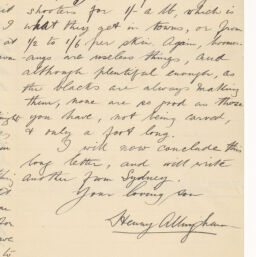 shooters for 1/- a lb, which is
I what they get in towns, or from
at 1/2 to 1/6 per skin. Again, boomer-
angs are useless things, and
although plentiful enough, as
the blacks are always making
them, none are so good as those
you have, not being carved,
& only a foot long.
I will now conclude this
long letter, and will write
another from Sydney.
Your loving son
Henry Allingham